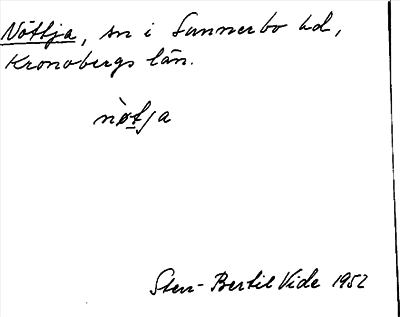 Nöttja, sn i Sunnerbo hd,
Kronobergs län.
nø̀tja
Sten-Bertil Vide 1952